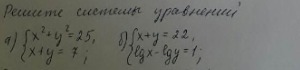 Решите системы уравнений
а) { x² + y² = 25,   б) { x + y = 22,
x + y = 7;   lg x - lg y = 1;